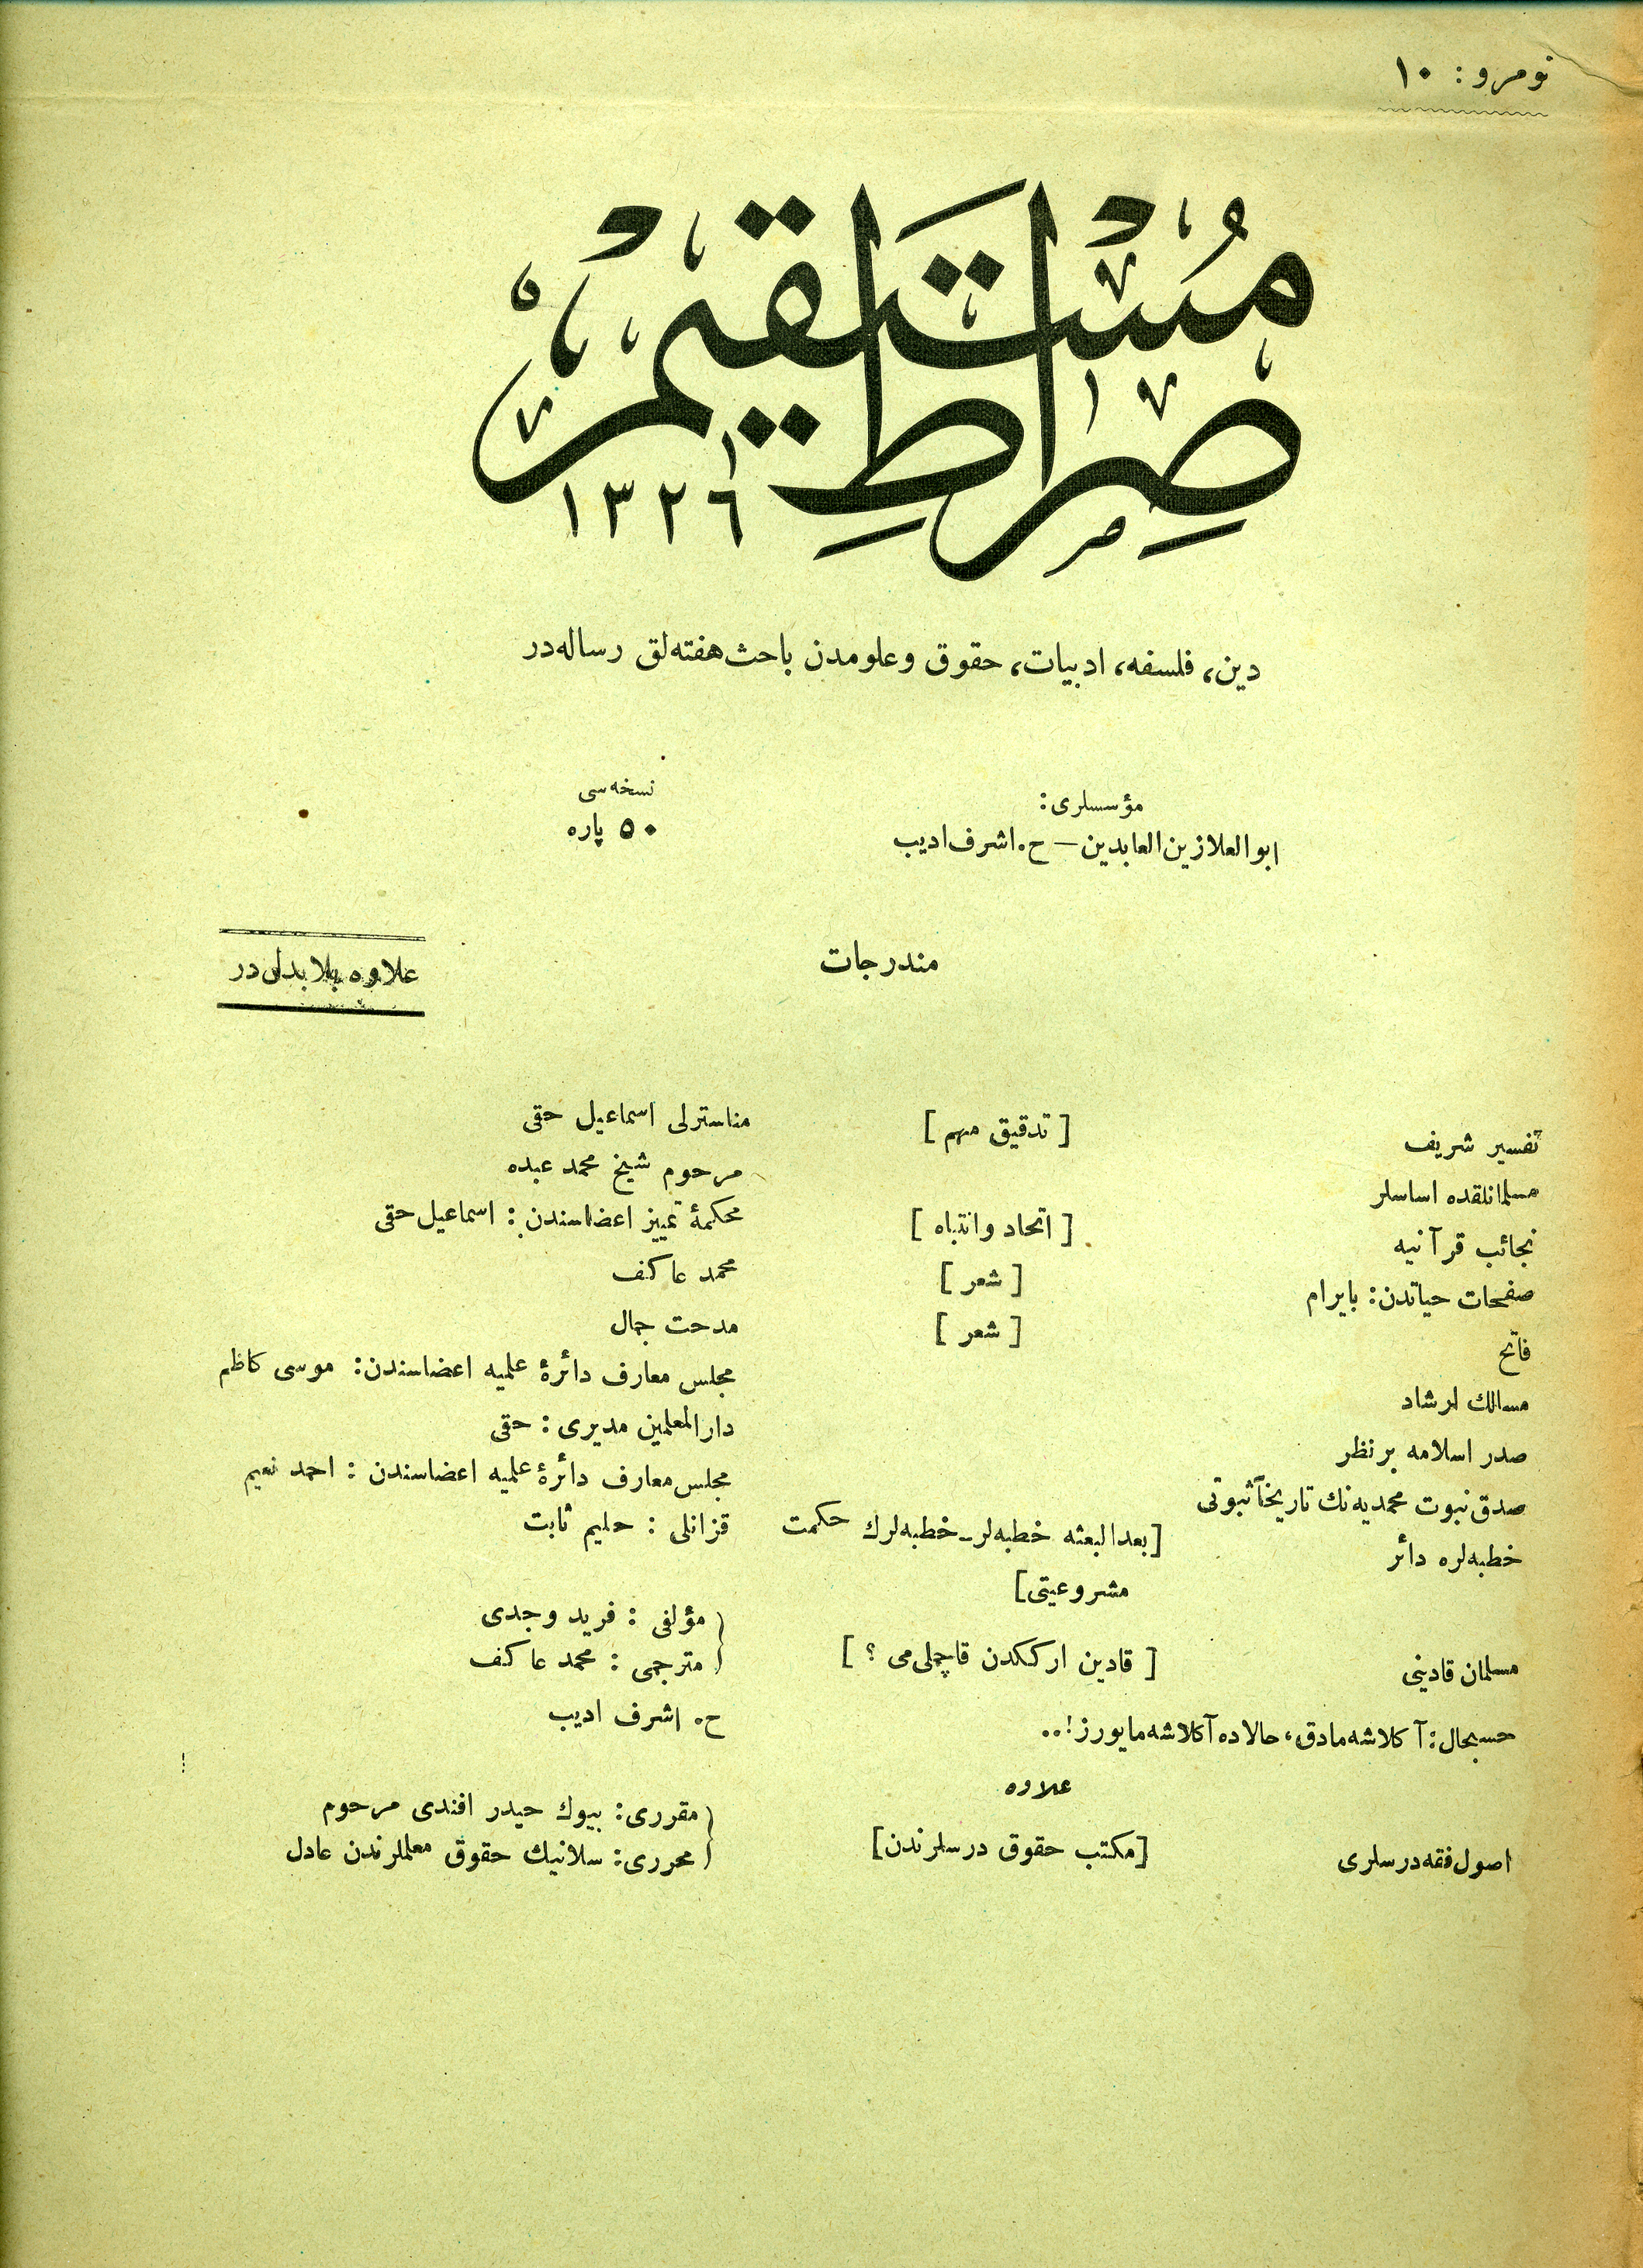 نومرو: ١٠
صِرَاطِ مُسْتَقِيم
١٣٢٦
دین، فلسفه، ادبیات، حقوق وعلومدن باحث هفته‌لق رساله‌در
مؤسسلری:
ابوالعلا زین‌العابدین — ح. اشرف ادیب
نسخه‌سی
٥٠ پاره
مندرجات
علاوه بلا بدلدر
تفسیر شریف [ تدقیق مهم ] مناسترلی اسماعیل حقی
مسلمانلقده اساسلر مرحوم شیخ محمد عبده
نجائب قرآنیه [ اتحاد وانتباه ] محکمهٔ تمییز اعضاسندن: اسماعیل حقی
صفحات حیاتدن: بایرام [ شعر ] محمد عاکف
فاتح [ شعر ] مدحت جمال
مسالك ارشاد مجلس معارف دائرهٔ علمیه اعضاسندن: موسی کاظم
صدر اسلامه بر نظر دارالمعلمین مدیری: حقی
صدق نبوت محمدیه‌نك تاریخاً ثبوتی مجلس معارف دائرهٔ علمیه اعضاسندن: احمد نعیم
خطبه‌لره دائر [بعدالبعثه خطبه‌لر ـ خطبه‌لرك حکمت قزانلی: حلیم ثابت
مشروعیتی]
مسلمان قادینی [ قادین ارککدن قاچملی‌می ؟ ] مؤلفی: فرید وجدی
مترجمی: محمد عاکف
حسبحال: آکلاشه‌مادق، حالاده آکلاشه‌مایورز!.. ح. اشرف ادیب
علاوه
اصول فقه درسلری [مکتب حقوق درسلرندن] مقرری: بیوك حیدر افندی مرحوم
محرری: سلانیك حقوق معلملرندن عادل